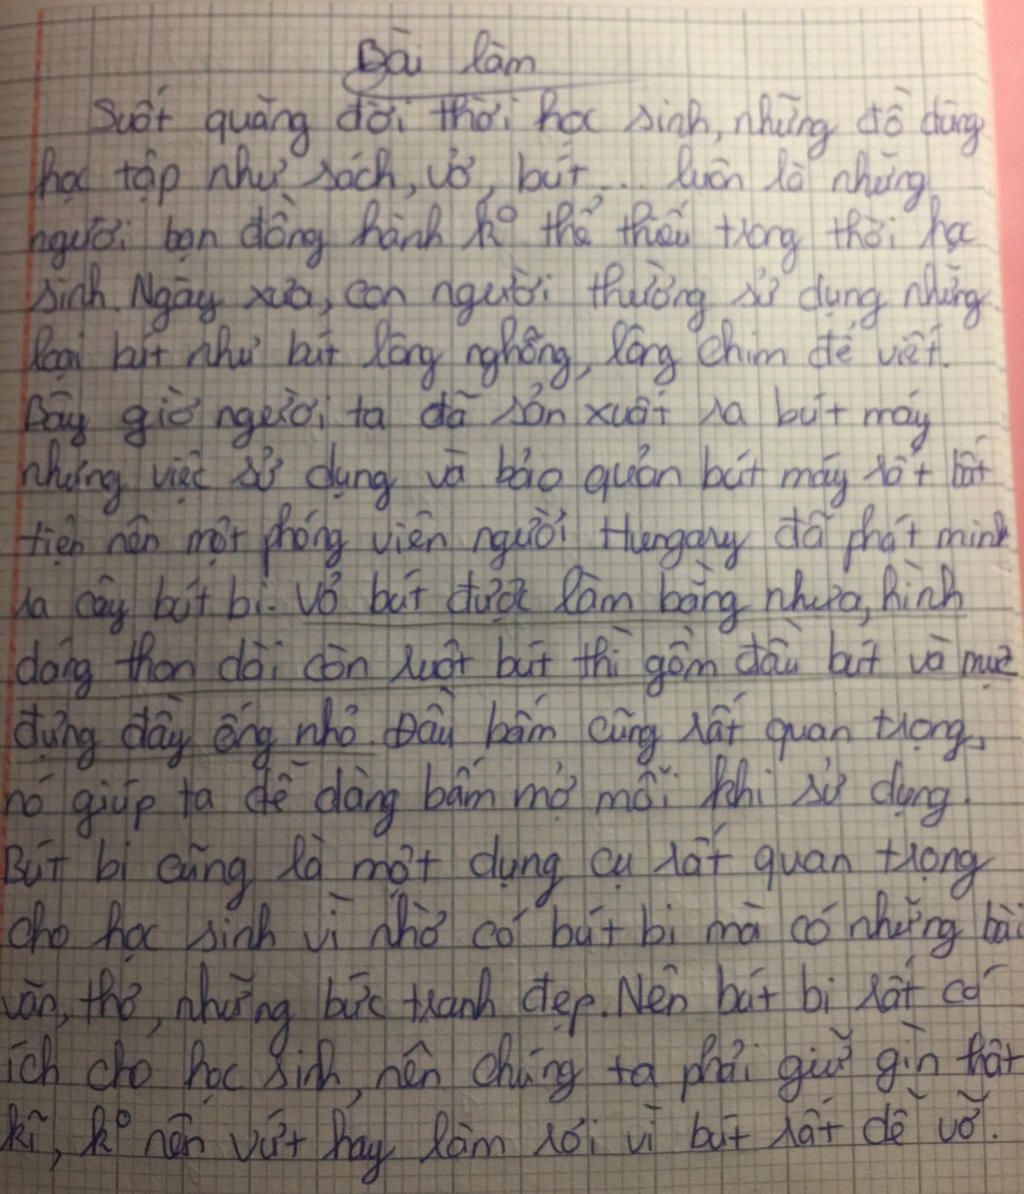 Bài làm
Suốt quãng đời thời học sinh, những đồ dùng
học tập như sách, vở, bút,... luôn là những
người bạn đồng hành k° thể thiếu trong thời học
sinh. Ngày xưa, con người thường sử dụng những
loại bút như bút lông nghỗng, lông chim để viết.
Bây giờ người ta đã sản xuất ra bút máy
nhưng việc sử dụng và bảo quản bút máy rất bất
tiện nên một phóng viên người Hungary đã phát minh
ra cây bút bi. Vỏ bút được làm bằng nhựa, hình
dáng thon dài còn ruột bút thì gồm đầu bút và mực
đựng đầy ống nhỏ. Đầu bấm cũng rất quan trọng,
nó giúp ta dễ dàng bấm mở mỗi khi sử dụng.
Bút bi cũng là một dụng cụ rất quan trọng
cho học sinh vì nhờ có bút bi mà có những bài
văn, thơ, những bức tranh đẹp. Nên bút bi rất có
ích cho học sinh, nên chúng ta phải giữ gìn thật
kĩ, k° nên vứt hay làm rơi vì bút rất dễ vỡ.